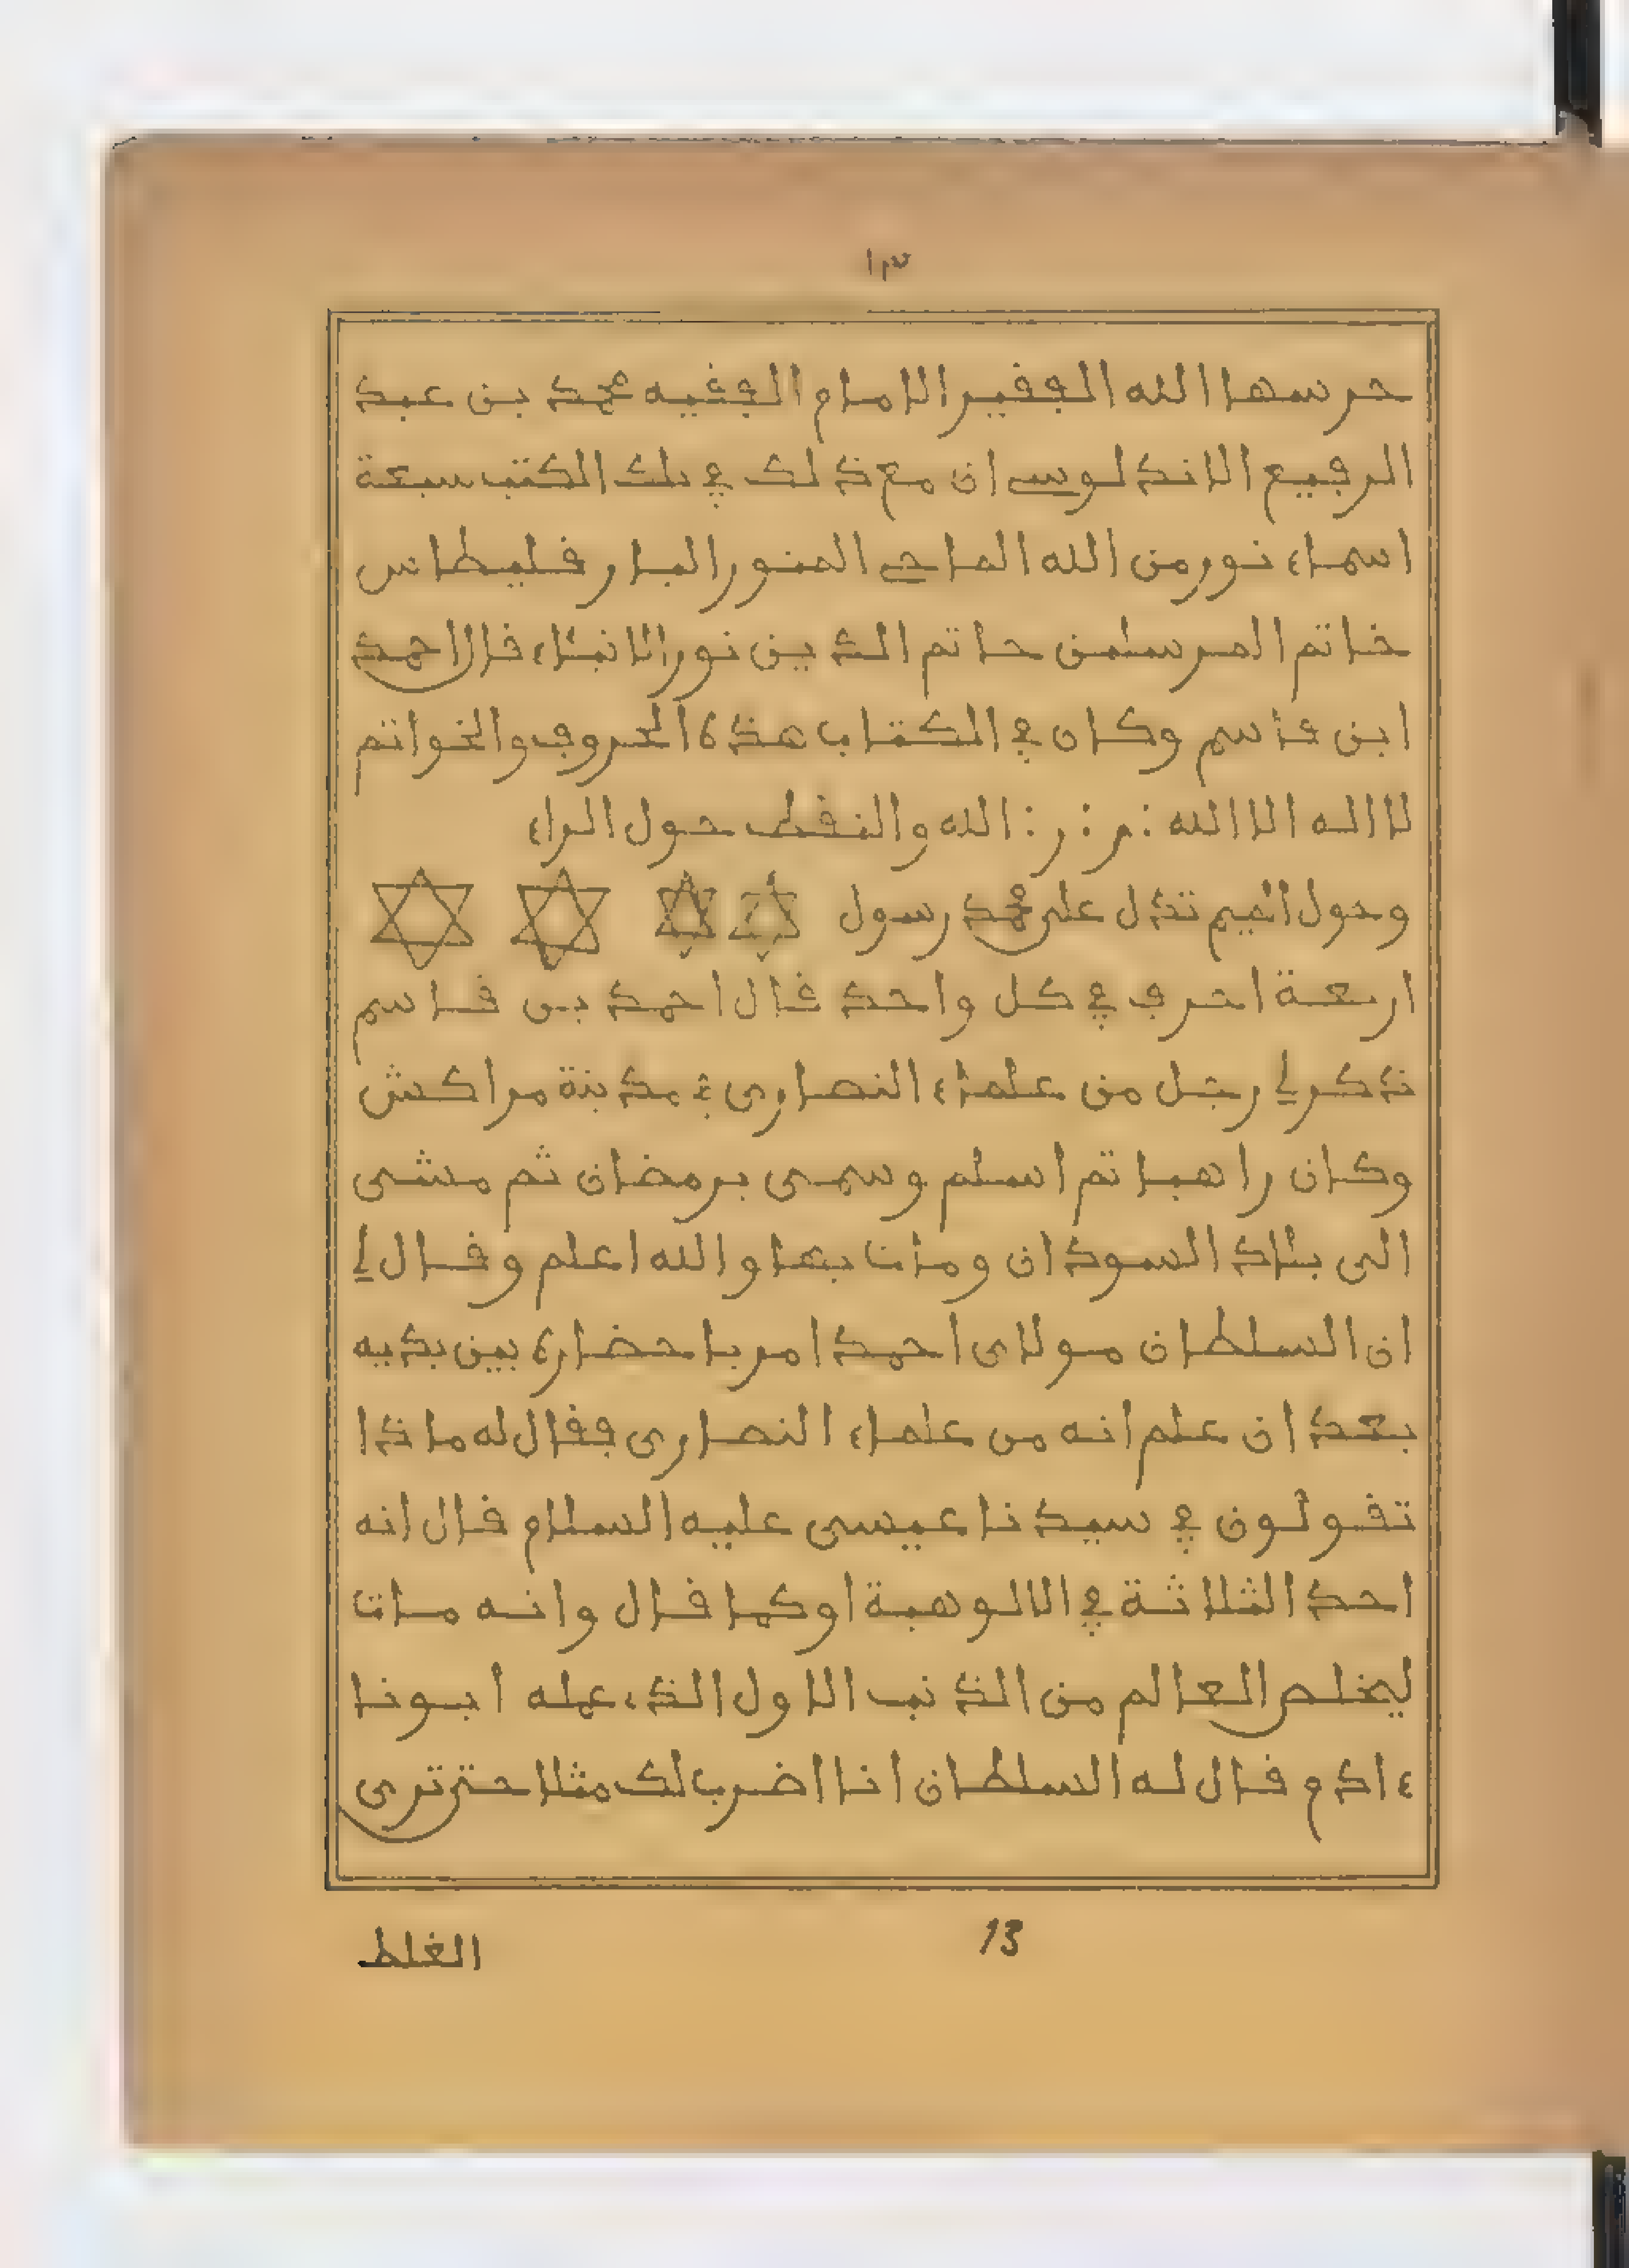 ١٣
حرسها الله الفقير الامام الفقيه محمد بن عبد
الرفيع الاندلوسي ان مع ذلك في تلك الكتب سبعة
اسماء نور من الله الماحي المنور البارقليطاس
خاتم المرسلين حاتم الدين نور الانبياء قال احمد
ابن قاسم وكان في الكتاب هذه الحروف والخواتم
لا اله الا الله : م : ر : الله والنقط حول الراء
وحول الميم تدل على محمد رسول
اربعة احرف في كل واحد قال احمد بن قاسم
ذكر لي رجل من علماء النصارى في مدينة مراكش
وكان راهبا تم اسلم وسمى برمضان ثم مشى
الى بلاد السودان ومات بها والله اعلم وقال لي
ان السلطان مولاى احمد امر باحضاره بين يديه
بعد ان علم انه من علماء النصارى فقال له ماذا
تقولون في سيدنا عيسى عليه السلام قال انه
احد الثلاثة في الالوهية او كما قال وانه مات
ليخلص العالم من الذنب الاول الذي عمله ابونا
ءادم قال له السلطان انا اضرب لك مثلا حتى ترى
13
الغلط